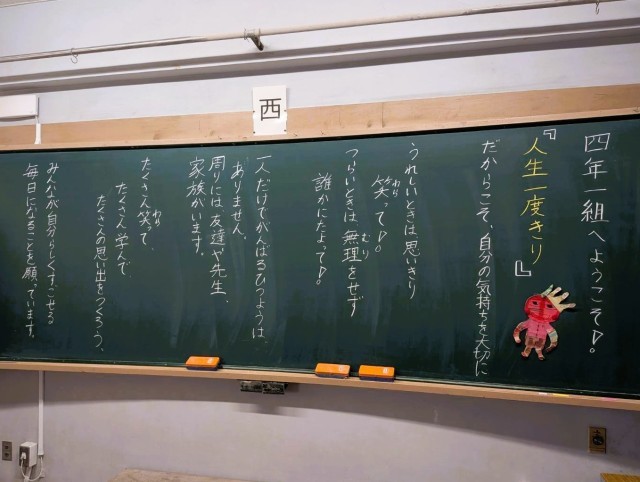 西
四年一組へようこそ♪。
『人生一度きり』
だからこそ、自分の気持ちを大切に
うれしいときは思いきり
笑って♪。
わら
つらいときは無理をせず
むり
誰かにたよって♪。
一人だけでがんばるひつようは
ありません。
周りには友達や先生、
家族がいます。
たくさん笑って、
わら
たくさん学んで、
たくさんの思い出をつくろう、
みんなが自分らしくすごせる
毎日になることを願っています。